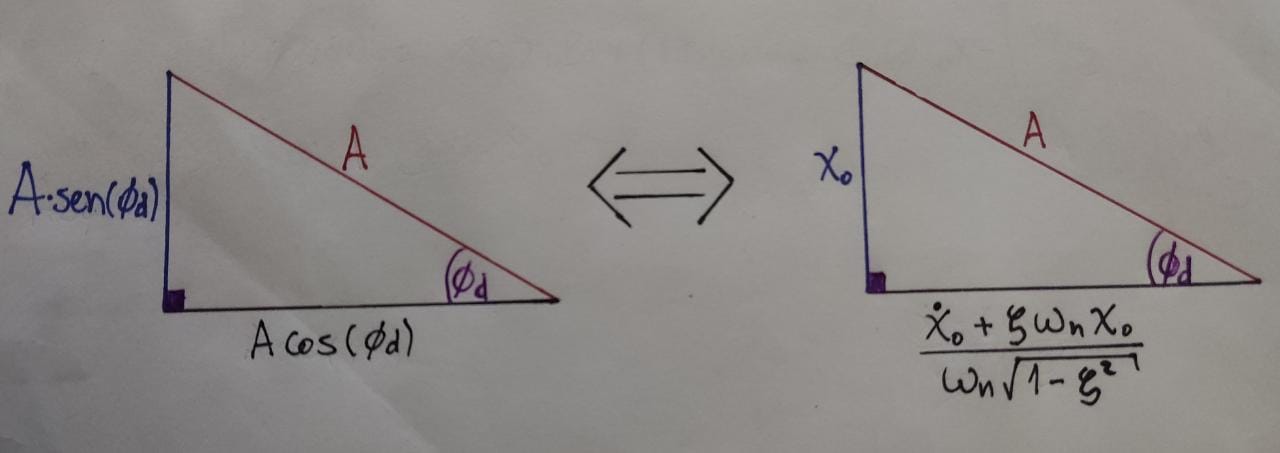 A
A·sen(ϕd)
ϕd
A cos(ϕd)
⟺
A
χ₀
ϕd
ẋ₀ + ξ ωn x₀
ωn √1 - ξ²